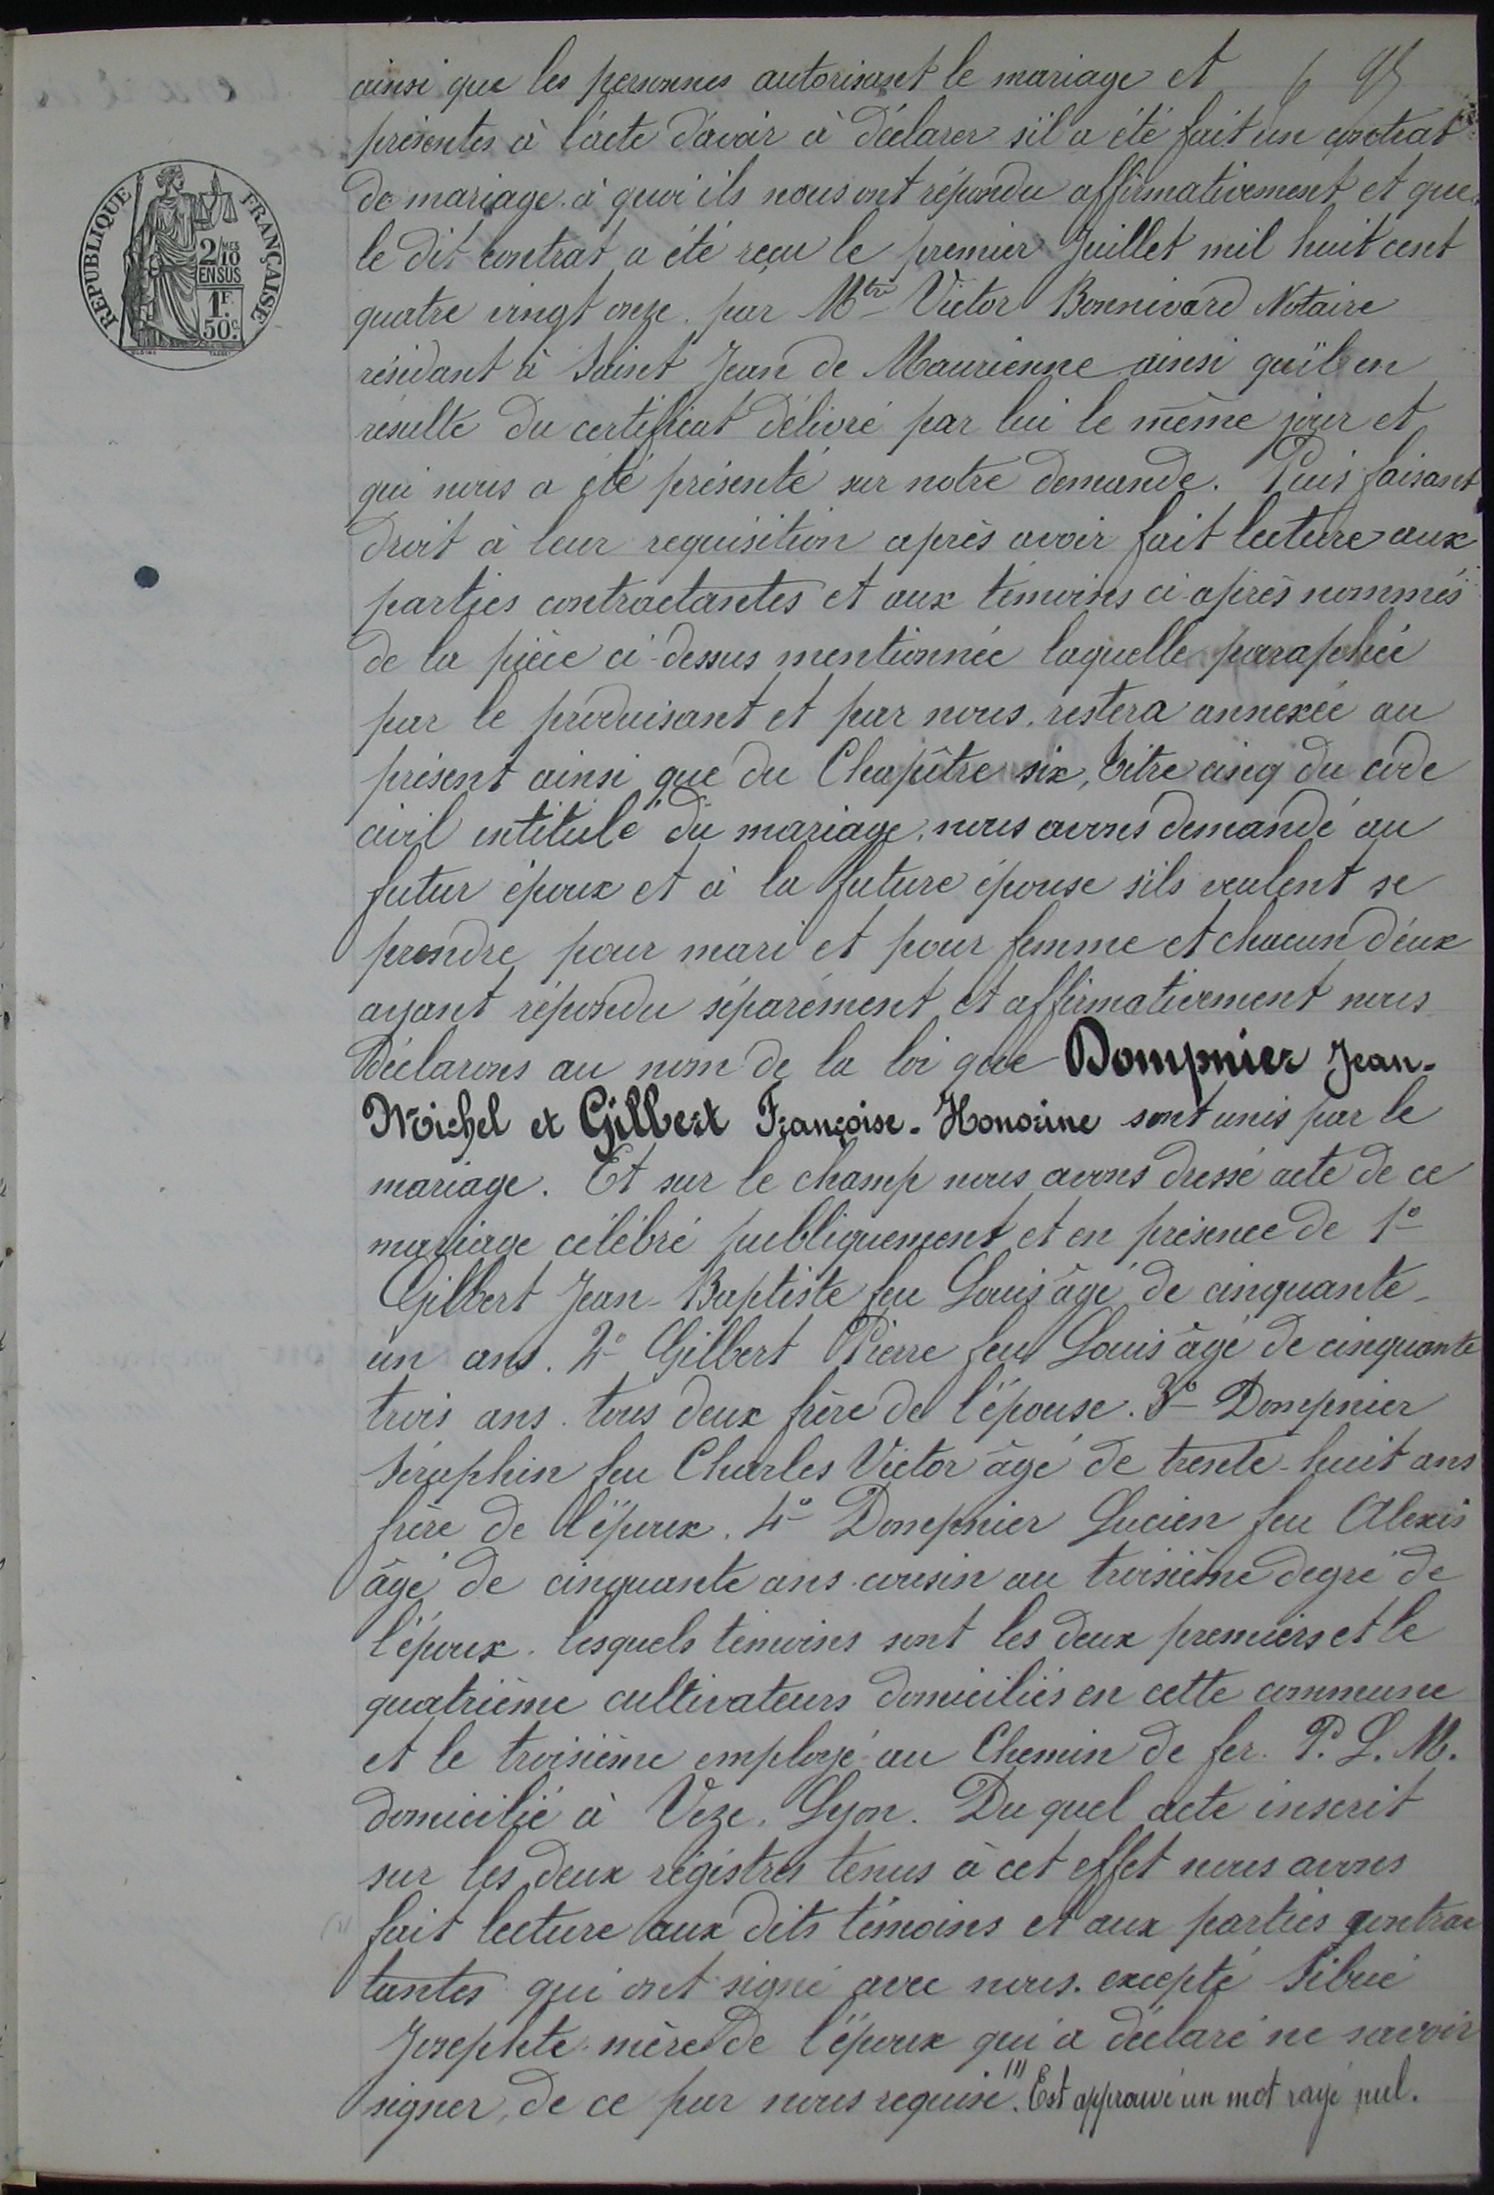 RÉPUBLIQUE FRANÇAISE
2/10 MES
EN SUS
1F.
50c.
ainsi que les personnes autorisant le mariage et
présentes à l'acte d'avoir à déclarer s'il a été fait un contrat
de mariage à quoi ils nous ont répondu affirmativement et que
le dit contrat a été reçu le premier Juillet mil huit cent
quatre vingt onze par Mtre Victor Bonnivard Notaire
résidant à Saint Jean de Maurienne ainsi qu'il en
résulte du certificat délivré par lui le même jour et
qui nous a été présenté sur notre demande. Puis faisant
droit à leur requisition après avoir fait lecture aux
parties contractantes et aux témoins ci-après nommés
de la pièce ci-dessus mentionnée laquelle paraphée
par le produisant et par nous, restera annexée au
présent ainsi que du Chapître six, titre cinq du code
civil intitulé du mariage, nous avons demandé au
futur époux et à la future épouse s'ils veulent se
prendre pour mari et pour femme et chacun d'eux
ayant répondu séparément et affirmativement nous
déclarons au nom de la loi que Dompnier Jean-
Michel et Gilbert Françoise-Honorine sont unis par le
mariage. Et sur le champ nous avons dressé acte de ce
mariage célébré publiquement et en présence de 1°
Gilbert Jean-Baptiste feu Louis âgé de cinquante-
un ans. 2° Gilbert Pierre feu Louis âgé de cinquante
trois ans. tous deux frère de l'épouse. 3° Dompnier
Séraphin feu Charles Victor âgé de trente-huit ans
frère de l'époux. 4° Dompnier Lucien feu Alexis
âgé de cinquante ans cousin au troisième degré de
l'époux. lesquels témoins sont les deux premiers et le
quatrième cultivateurs domiciliés en cette commune
et le troisième employé au Chemin de fer. P. L. M.
domicilié à Veze. Lyon. Du quel acte inscrit
sur les deux régistres tenus à cet effet nous avons
fait lecture aux dits témoins et aux parties contrac
tantes qui ont signé avec nous. excepté Sibué
Josephte mère de l'époux qui a déclaré ne savoir
signer, de ce par nous requise (1). Est approuvé un mot rayé nul.